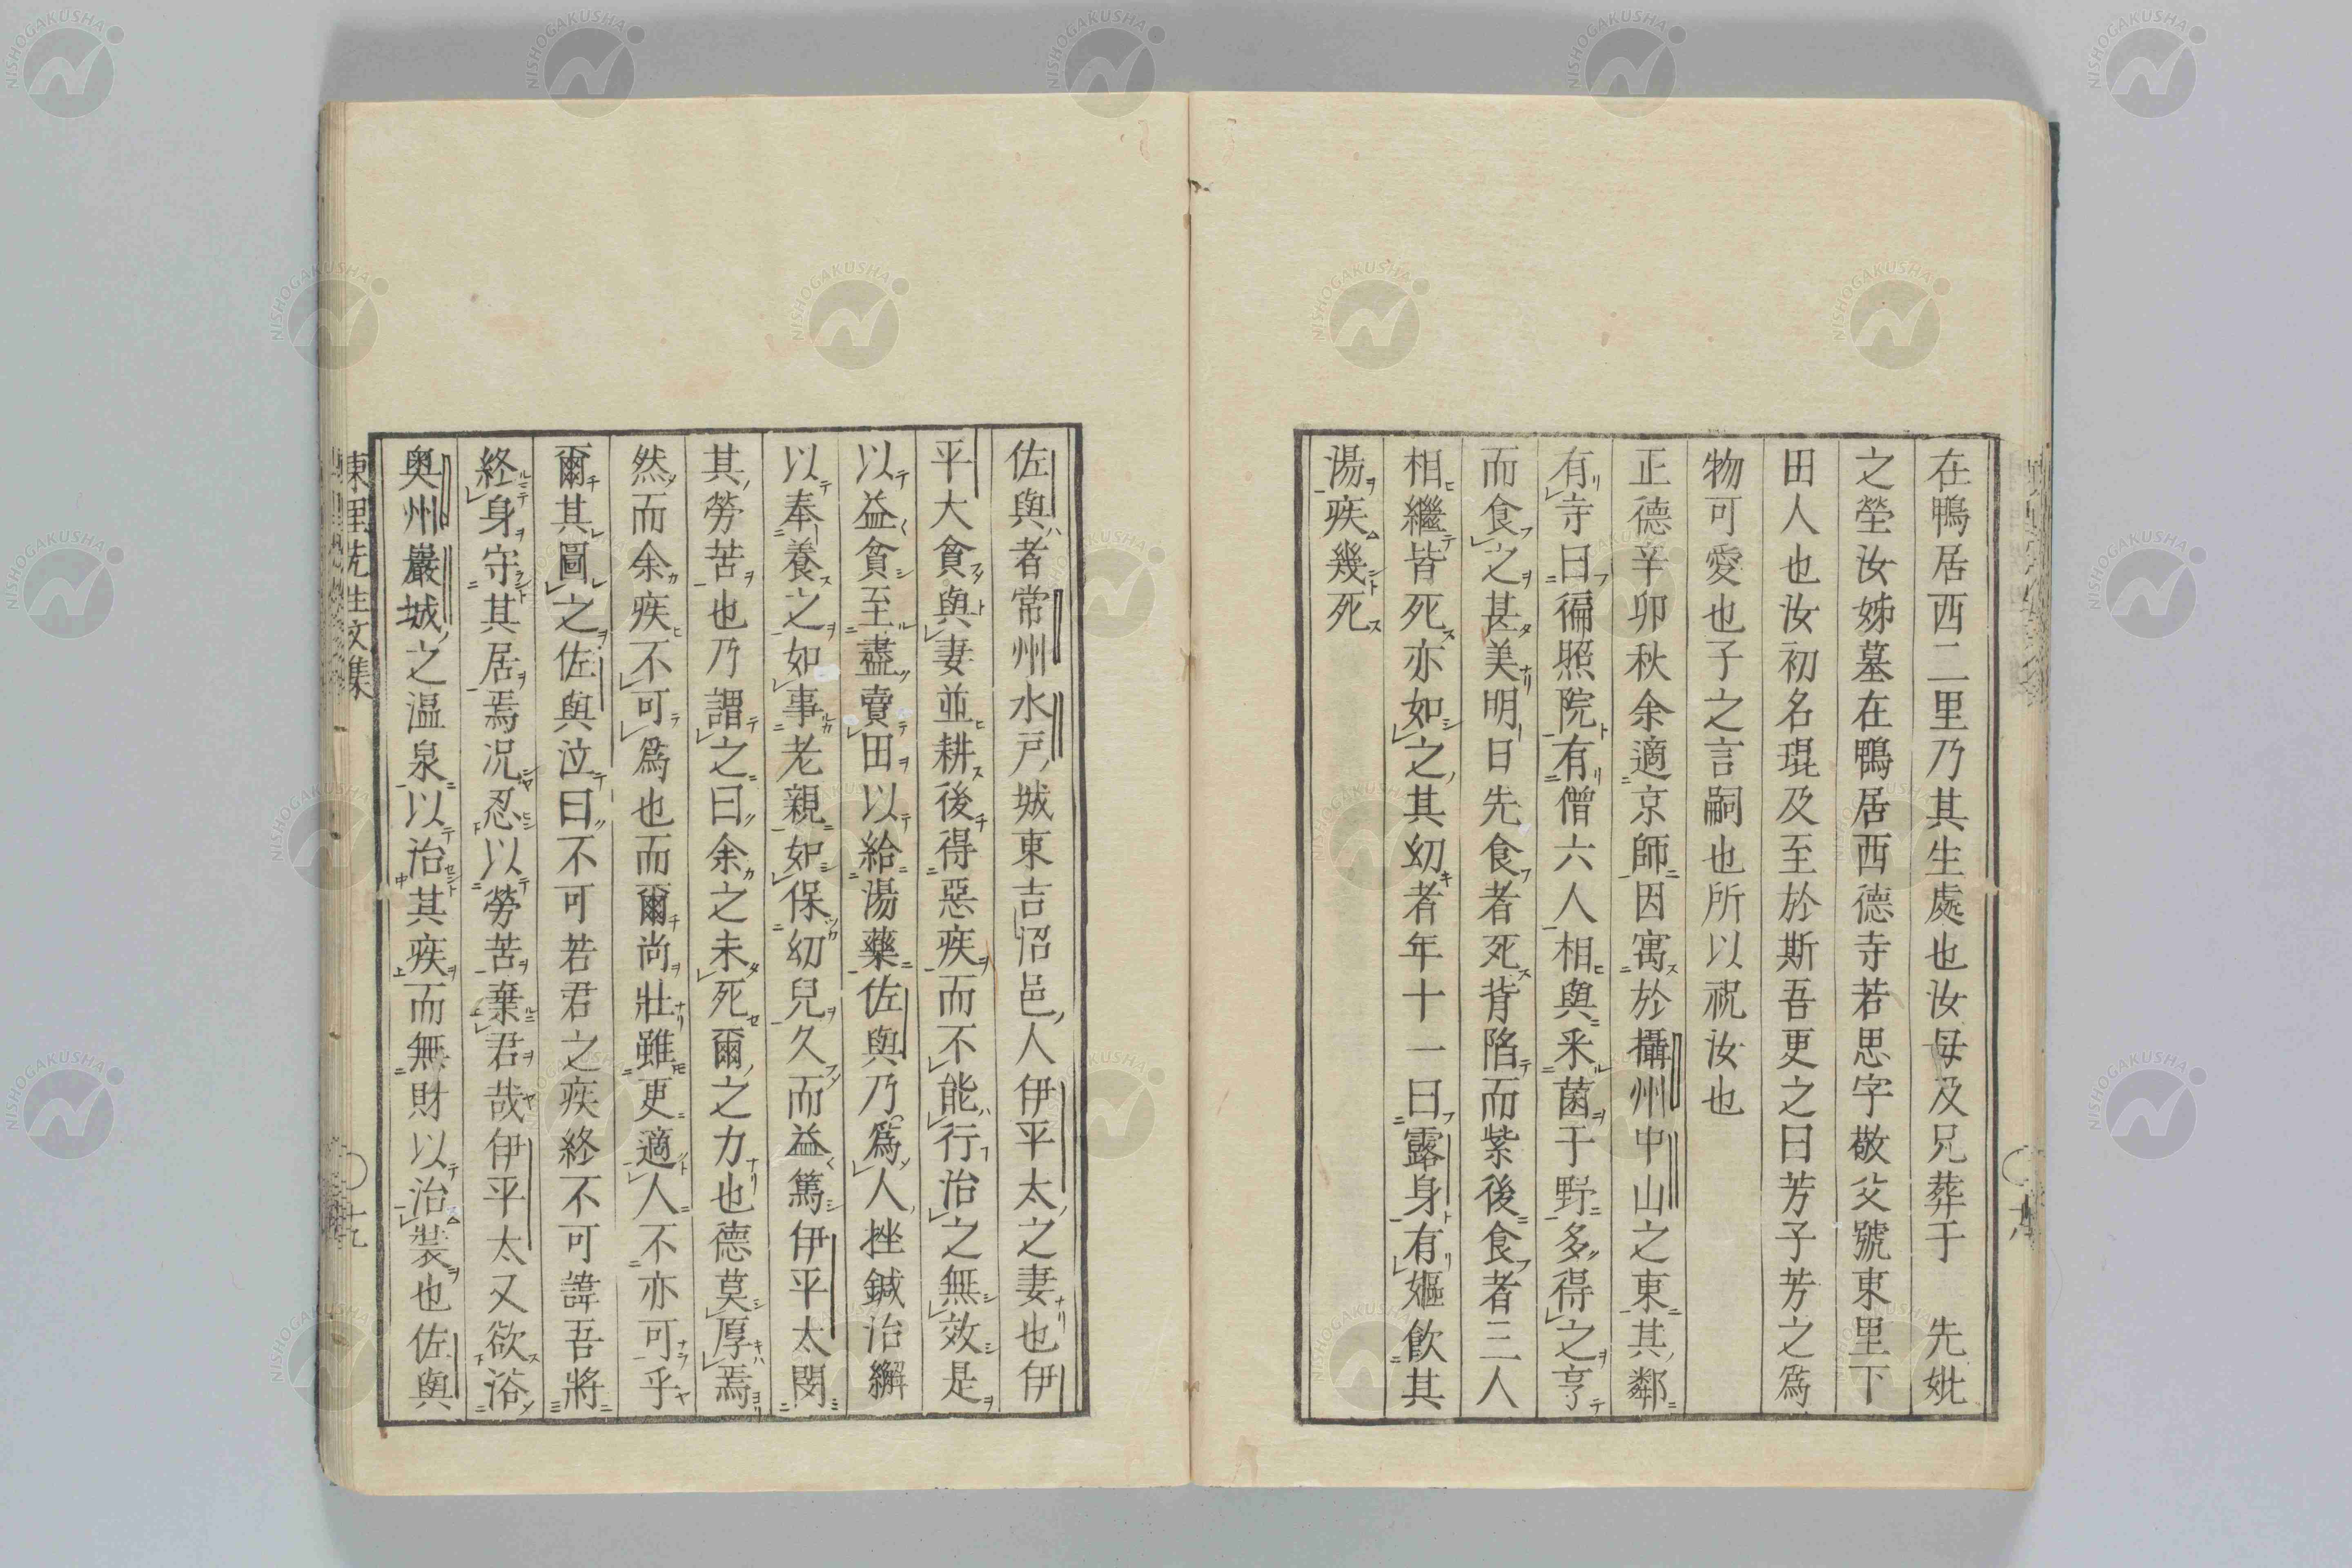 在鴨居西二里乃其生處也汝母及兄葬于　先妣
之塋汝姊墓在鴨居西德寺若思字敬父號東里下
田人也汝初名琨及至於斯吾更之曰芳子芳之爲
物可愛也子之言嗣也所以祝汝也
正德辛卯秋余適京師因寓於攝州中山之東其鄰
有寺曰徧照院有僧六人相與采菌于野多得之亨
而食之甚美明日先食者死背陷而紫後食者三人
相繼皆死亦如之其幼者年十一曰露身有嫗飲其
湯疾幾死
佐與者常州水戸城東吉沼邑人伊平太之妻也伊
平大貪與妻並耕後得惡疾而不能行治之無效是
以益貧至盡賣田以給湯藥佐與乃爲人挫鍼治繲
以奉養之如事老親如保幼兒久而益篤伊平太閔
其勞苦也乃謂之曰余之未死爾之力也德莫厚焉
然而余疾不可爲也而爾尚壯雖更適人不亦可乎
爾其圖之佐與泣曰不可若君之疾終不可諱吾將
終身守其居焉况忍以勞苦棄君哉伊平太又欲浴
奥州巖城之温泉以治其疾而無財以治裝也佐與
東里先生文集
十九
NISHOGAKUSHA